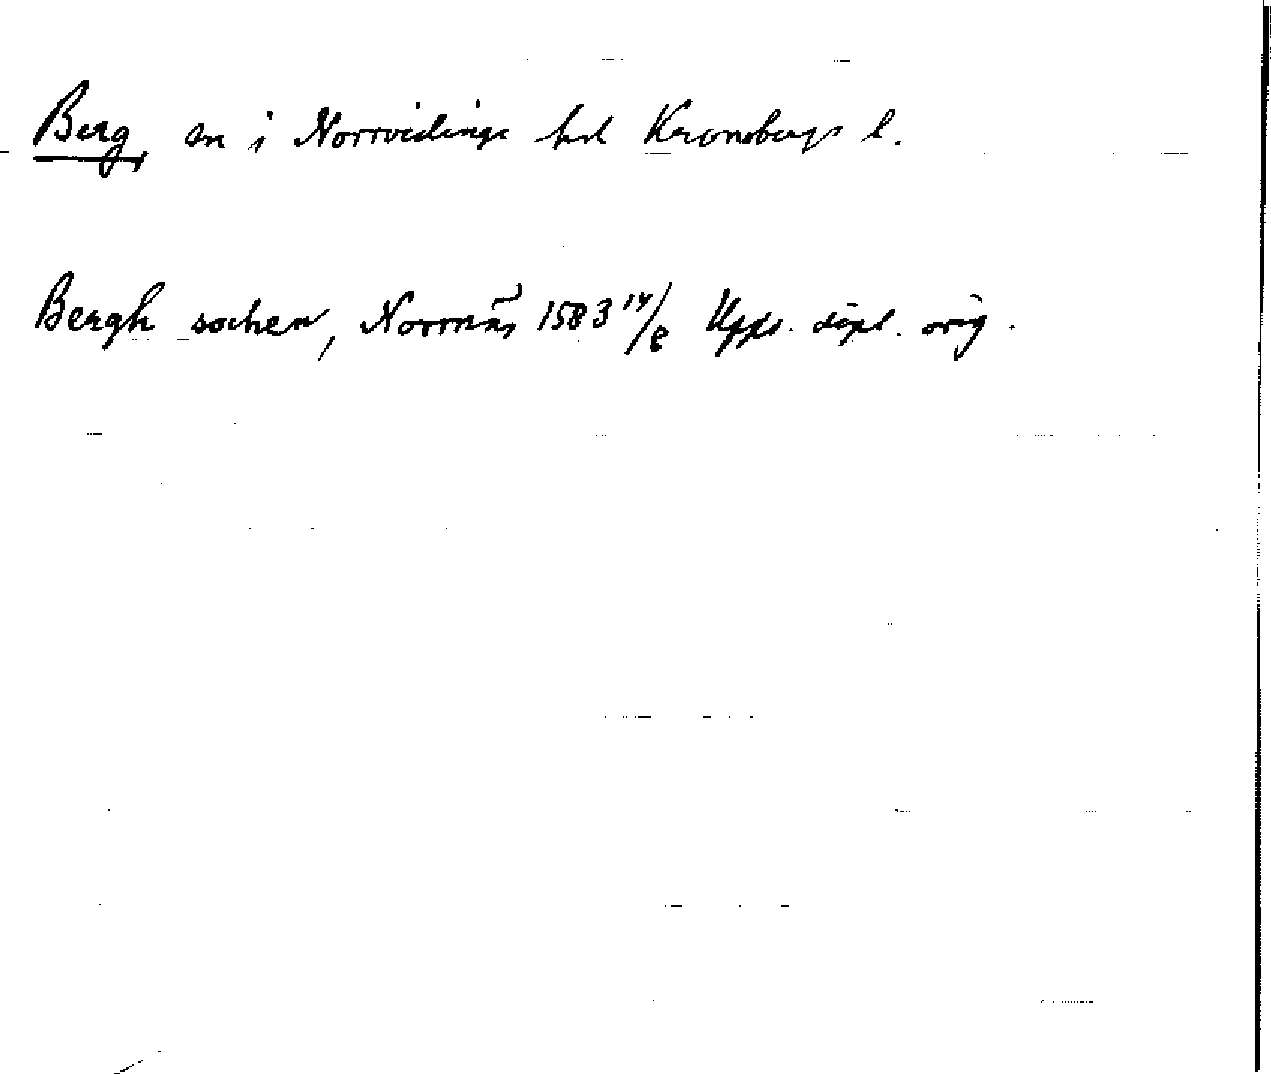 Berg, sn i Norrvidinge hd Kronobergs l.
Bergh sochen, Norrnäs 1583 14/8 Upps. dipl. orig.